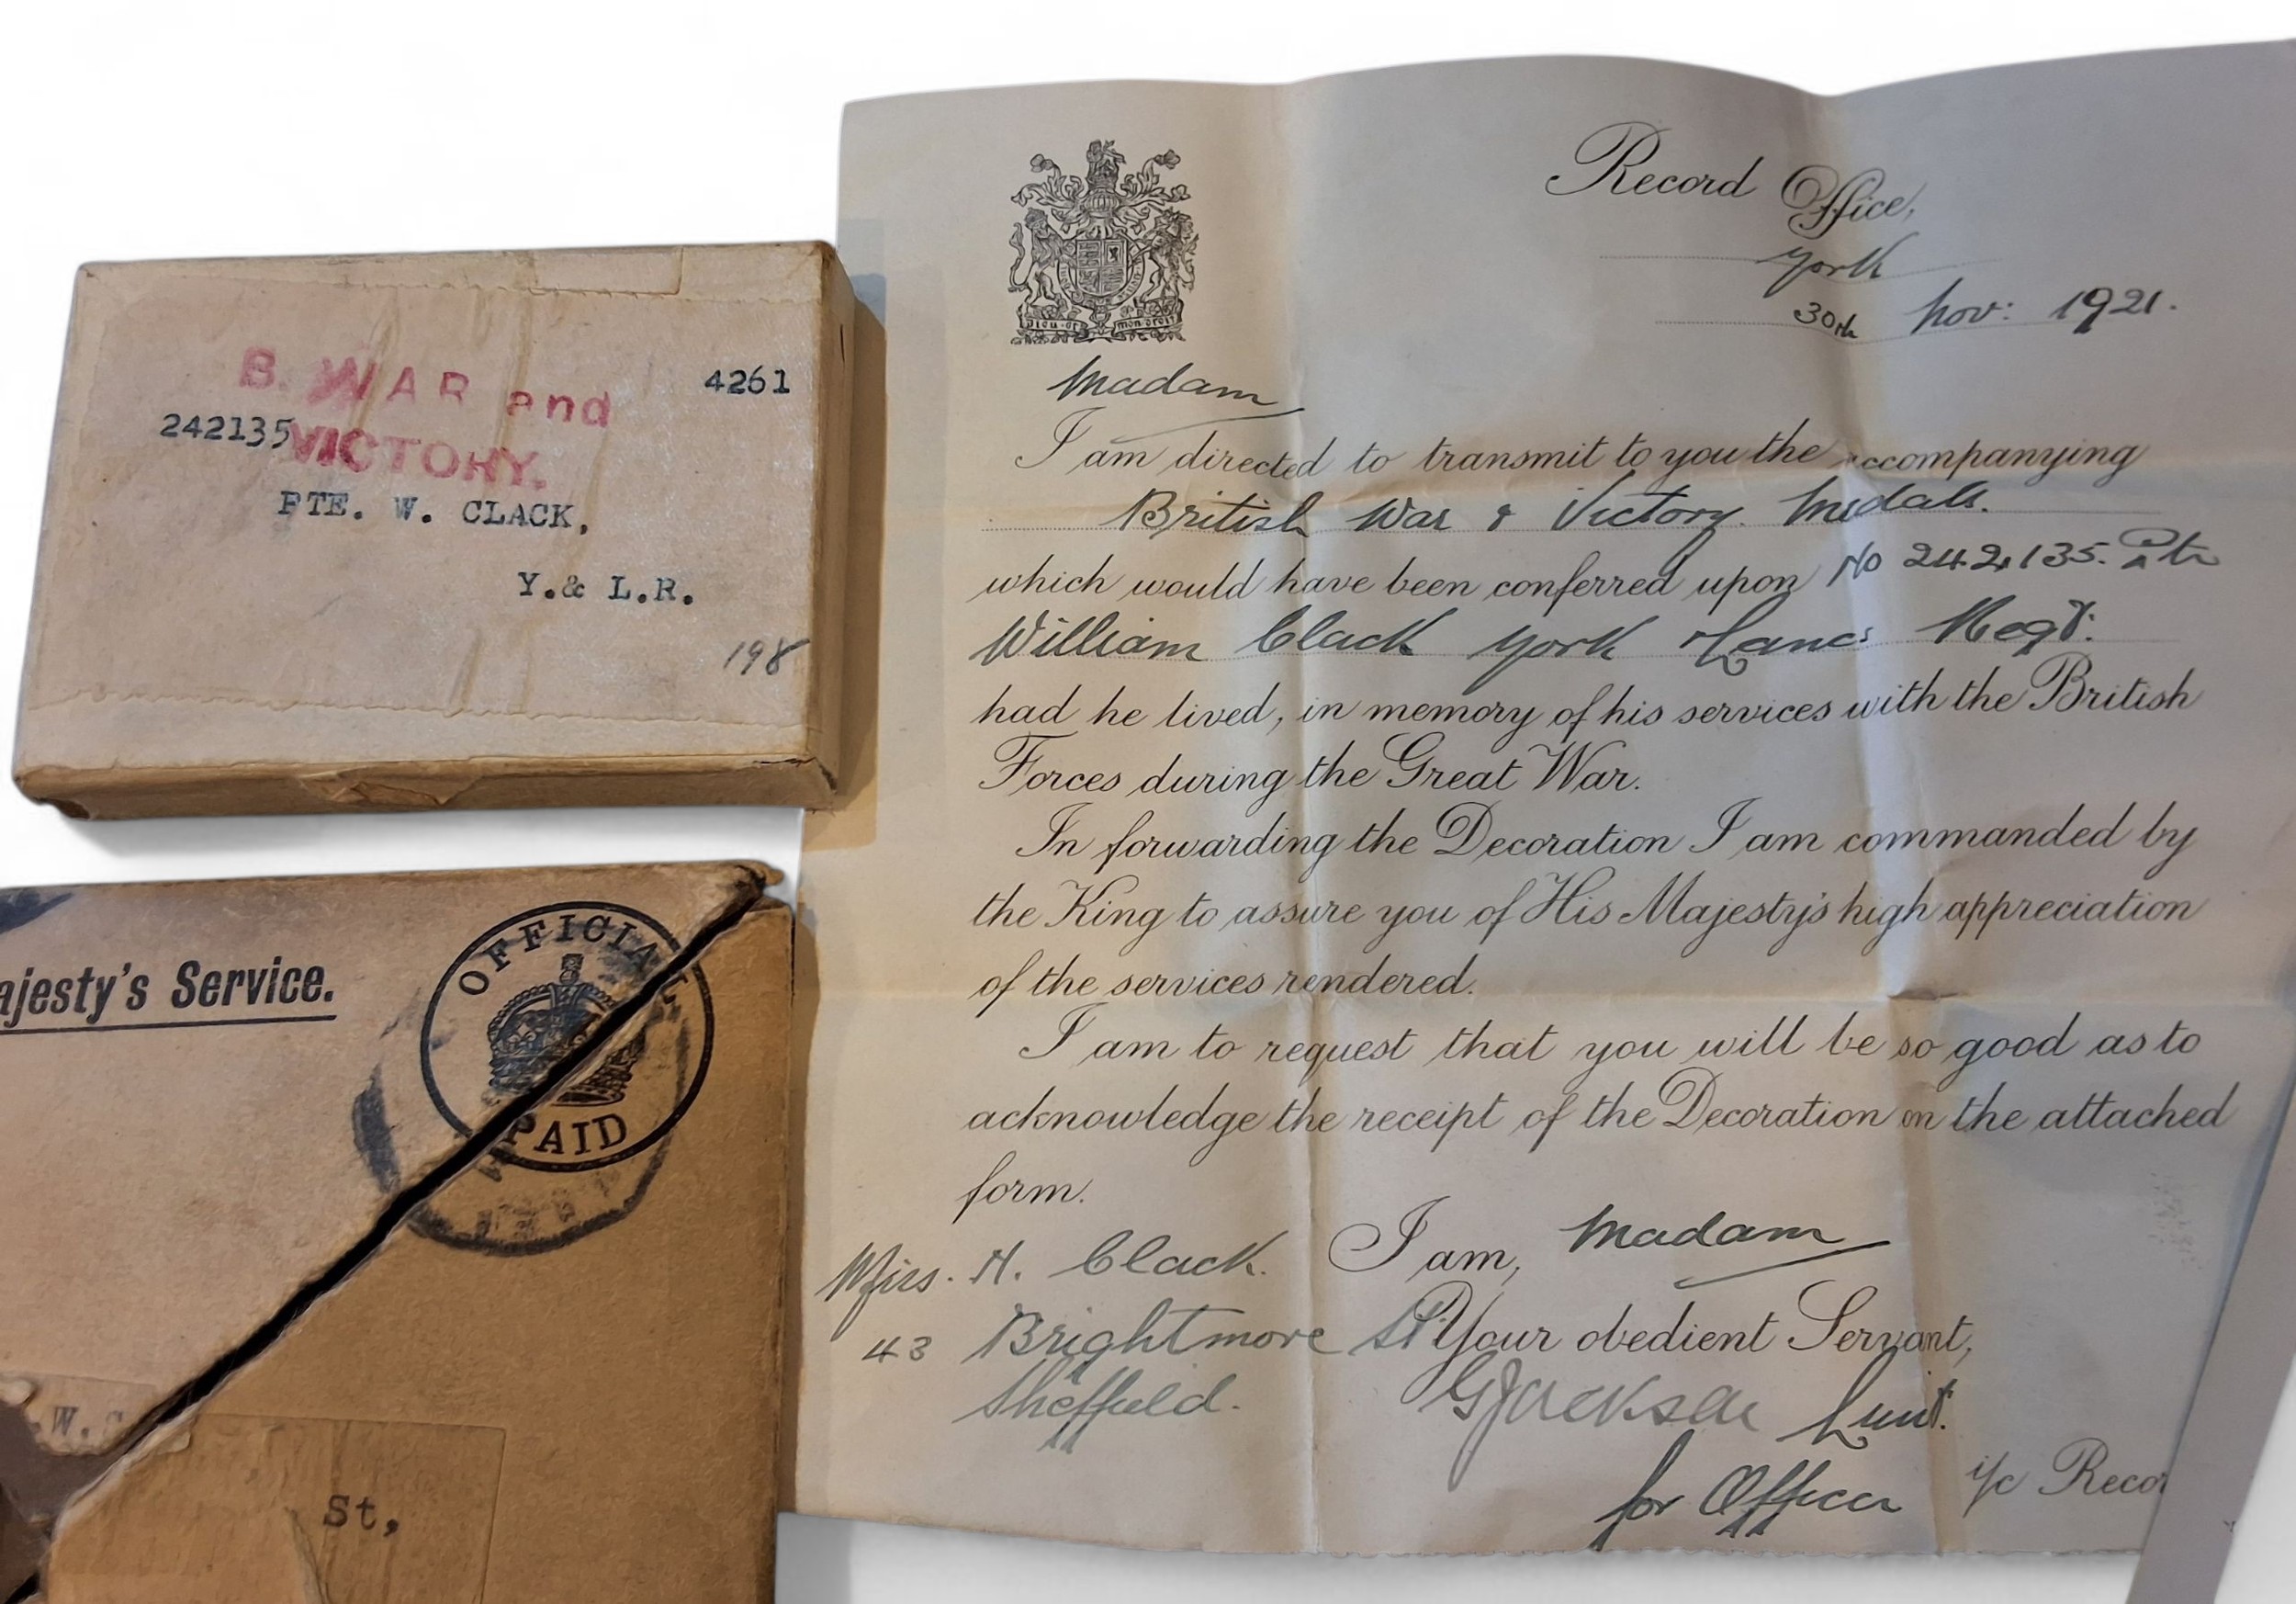 B. WAR and
4261
242135
VICTORY.
PTE. W. CLACK,
Y.& L.R.
198
ajesty's Service.
OFFICIAL
PAID
W.
St,
Record Office,
York
30th Nov: 1921.
Dieu et mon droit
Madam
I am directed to transmit to you the accompanying
British War & Victory. Medals.
which would have been conferred upon No 242135. Pte
William Clack York & Lanc: Regt:
had he lived, in memory of his services with the British
Forces during the Great War.
In forwarding the Decoration I am commanded by
the King to assure you of His Majesty's high appreciation
of the services rendered.
I am to request that you will be so good as to
acknowledge the receipt of the Decoration on the attached
form.
I am, Madam
H. Clack.
43 Brightmore St.
Sheffield.
Your obedient Servant,
GJackson Lieut.
for Officer i/c Recor